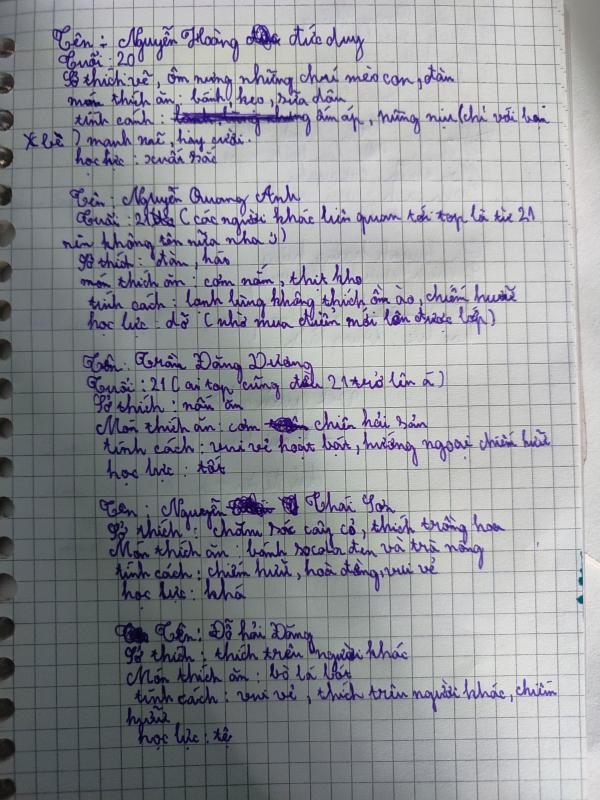 Tên : Nguyễn Hoàng đức duy
Tuổi : 20
Sở thích vẽ, ôm nựng những chú mèo con, đàn
món thích ăn : bánh kẹo, sữa dâu
tính cánh : ấm áp, nũng nịu (chỉ với bạn
* bè) mạnh mẽ, hay cười.
học lực : xuất sắc
Tên : Nguyễn Quang Anh
Tuổi : 21 (các người khác liên quan tới top là từ 21
nên không tên nữa nha :))
Sở thích : đàn, háo
món thích ăn : cơm nắm, thịt kho
tính cách : lạnh lùng không thích ồn ào, chiếm hữu
học lực : dở (nhờ mua điểm mới lên được lớp)
Tên : Trần Đăng Dương
Tuổi : 21 (ai top cũng đều 21 trở lên á)
Sở thích : nấu ăn
Món thích ăn : cơm chiên hải sản
tính cách : vui vẻ hoạt bát, hướng ngoại chiếm hữu
học lực : tốt
Tên : Nguyễn Thái Sơn
Sở thích : chăm sóc cây cỏ, thích trồng hoa
Món thích ăn : bánh socola đen và trà nóng
tính cách : chiếm hữu, hoà đồng, vui vẻ
học lực : khá
Tên : Đỗ hải Đăng
Sở thích : thích trêu người khác
Món thích ăn : bò lá lốt
tính cách : vui vẻ, thích trêu người khác, chiếm
hữu
học lực : tệ